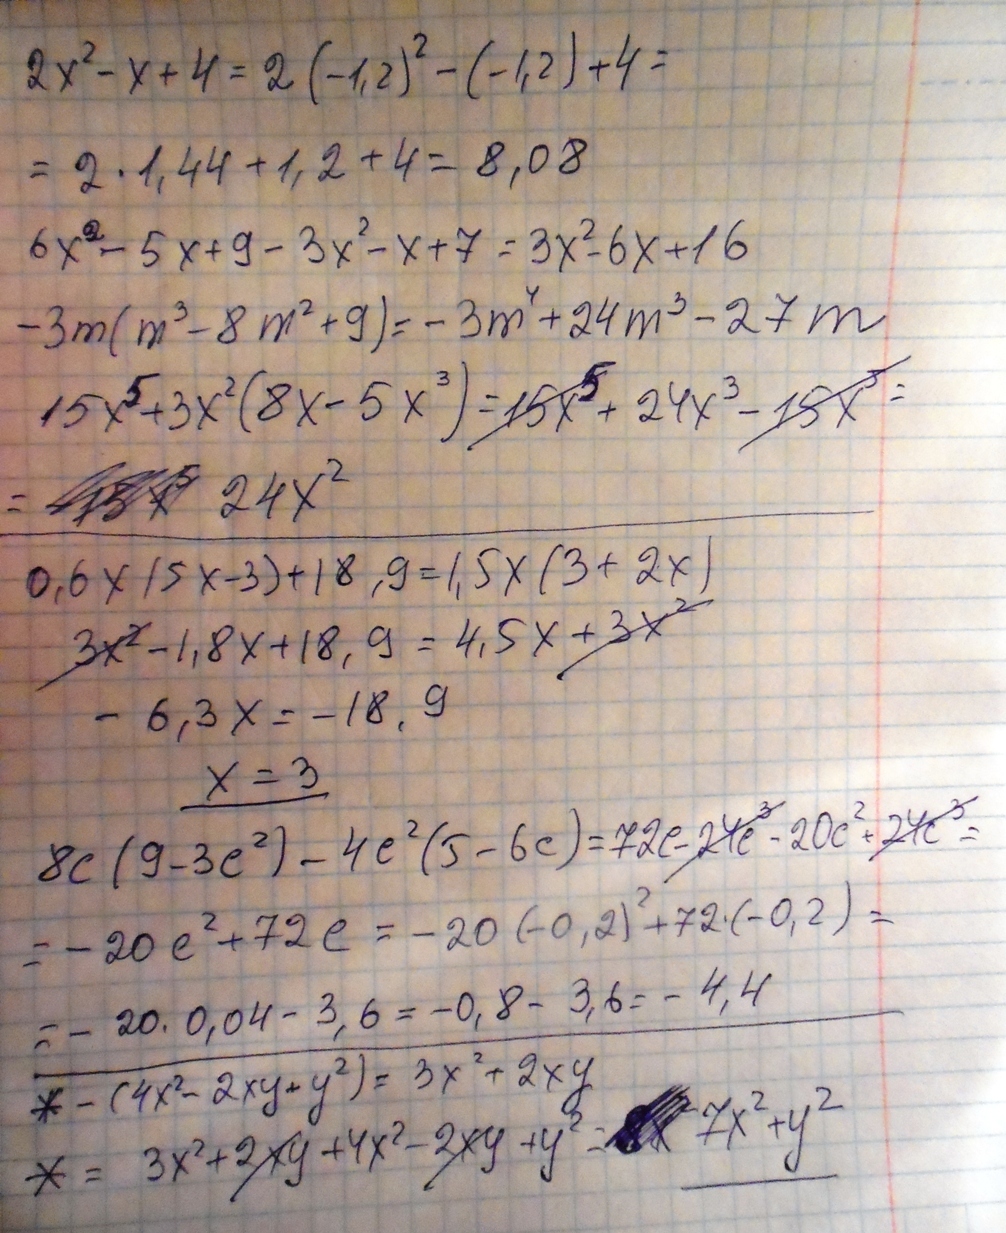 2x² - x + 4 = 2(-1,2)² - (-1,2) + 4 =
= 2 · 1,44 + 1,2 + 4 = 8,08
6x² - 5x + 9 - 3x² - x + 7 = 3x² - 6x + 16
-3m(m³ - 8m² + 9) = -3m⁴ + 24m³ - 27m
15x⁵ + 3x²(8x - 5x³) = 15x⁵ + 24x³ - 15x⁵ =
= 24x²
0,6x(5x-3) + 18,9 = 1,5x(3 + 2x)
3x² - 1,8x + 18,9 = 4,5x + 3x²
- 6,3x = -18,9
x = 3
8c(9 - 3c²) - 4c²(5 - 6c) = 72c - 24c³ - 20c² + 24c³ =
= -20c² + 72c = -20(-0,2)² + 72·(-0,2) =
= - 20 · 0,04 - 3,6 = -0,8 - 3,6 = - 4,4
* - (4x² - 2xy + y²) = 3x² + 2xy
* = 3x² + 2xy + 4x² - 2xy + y² = 7x² + y²